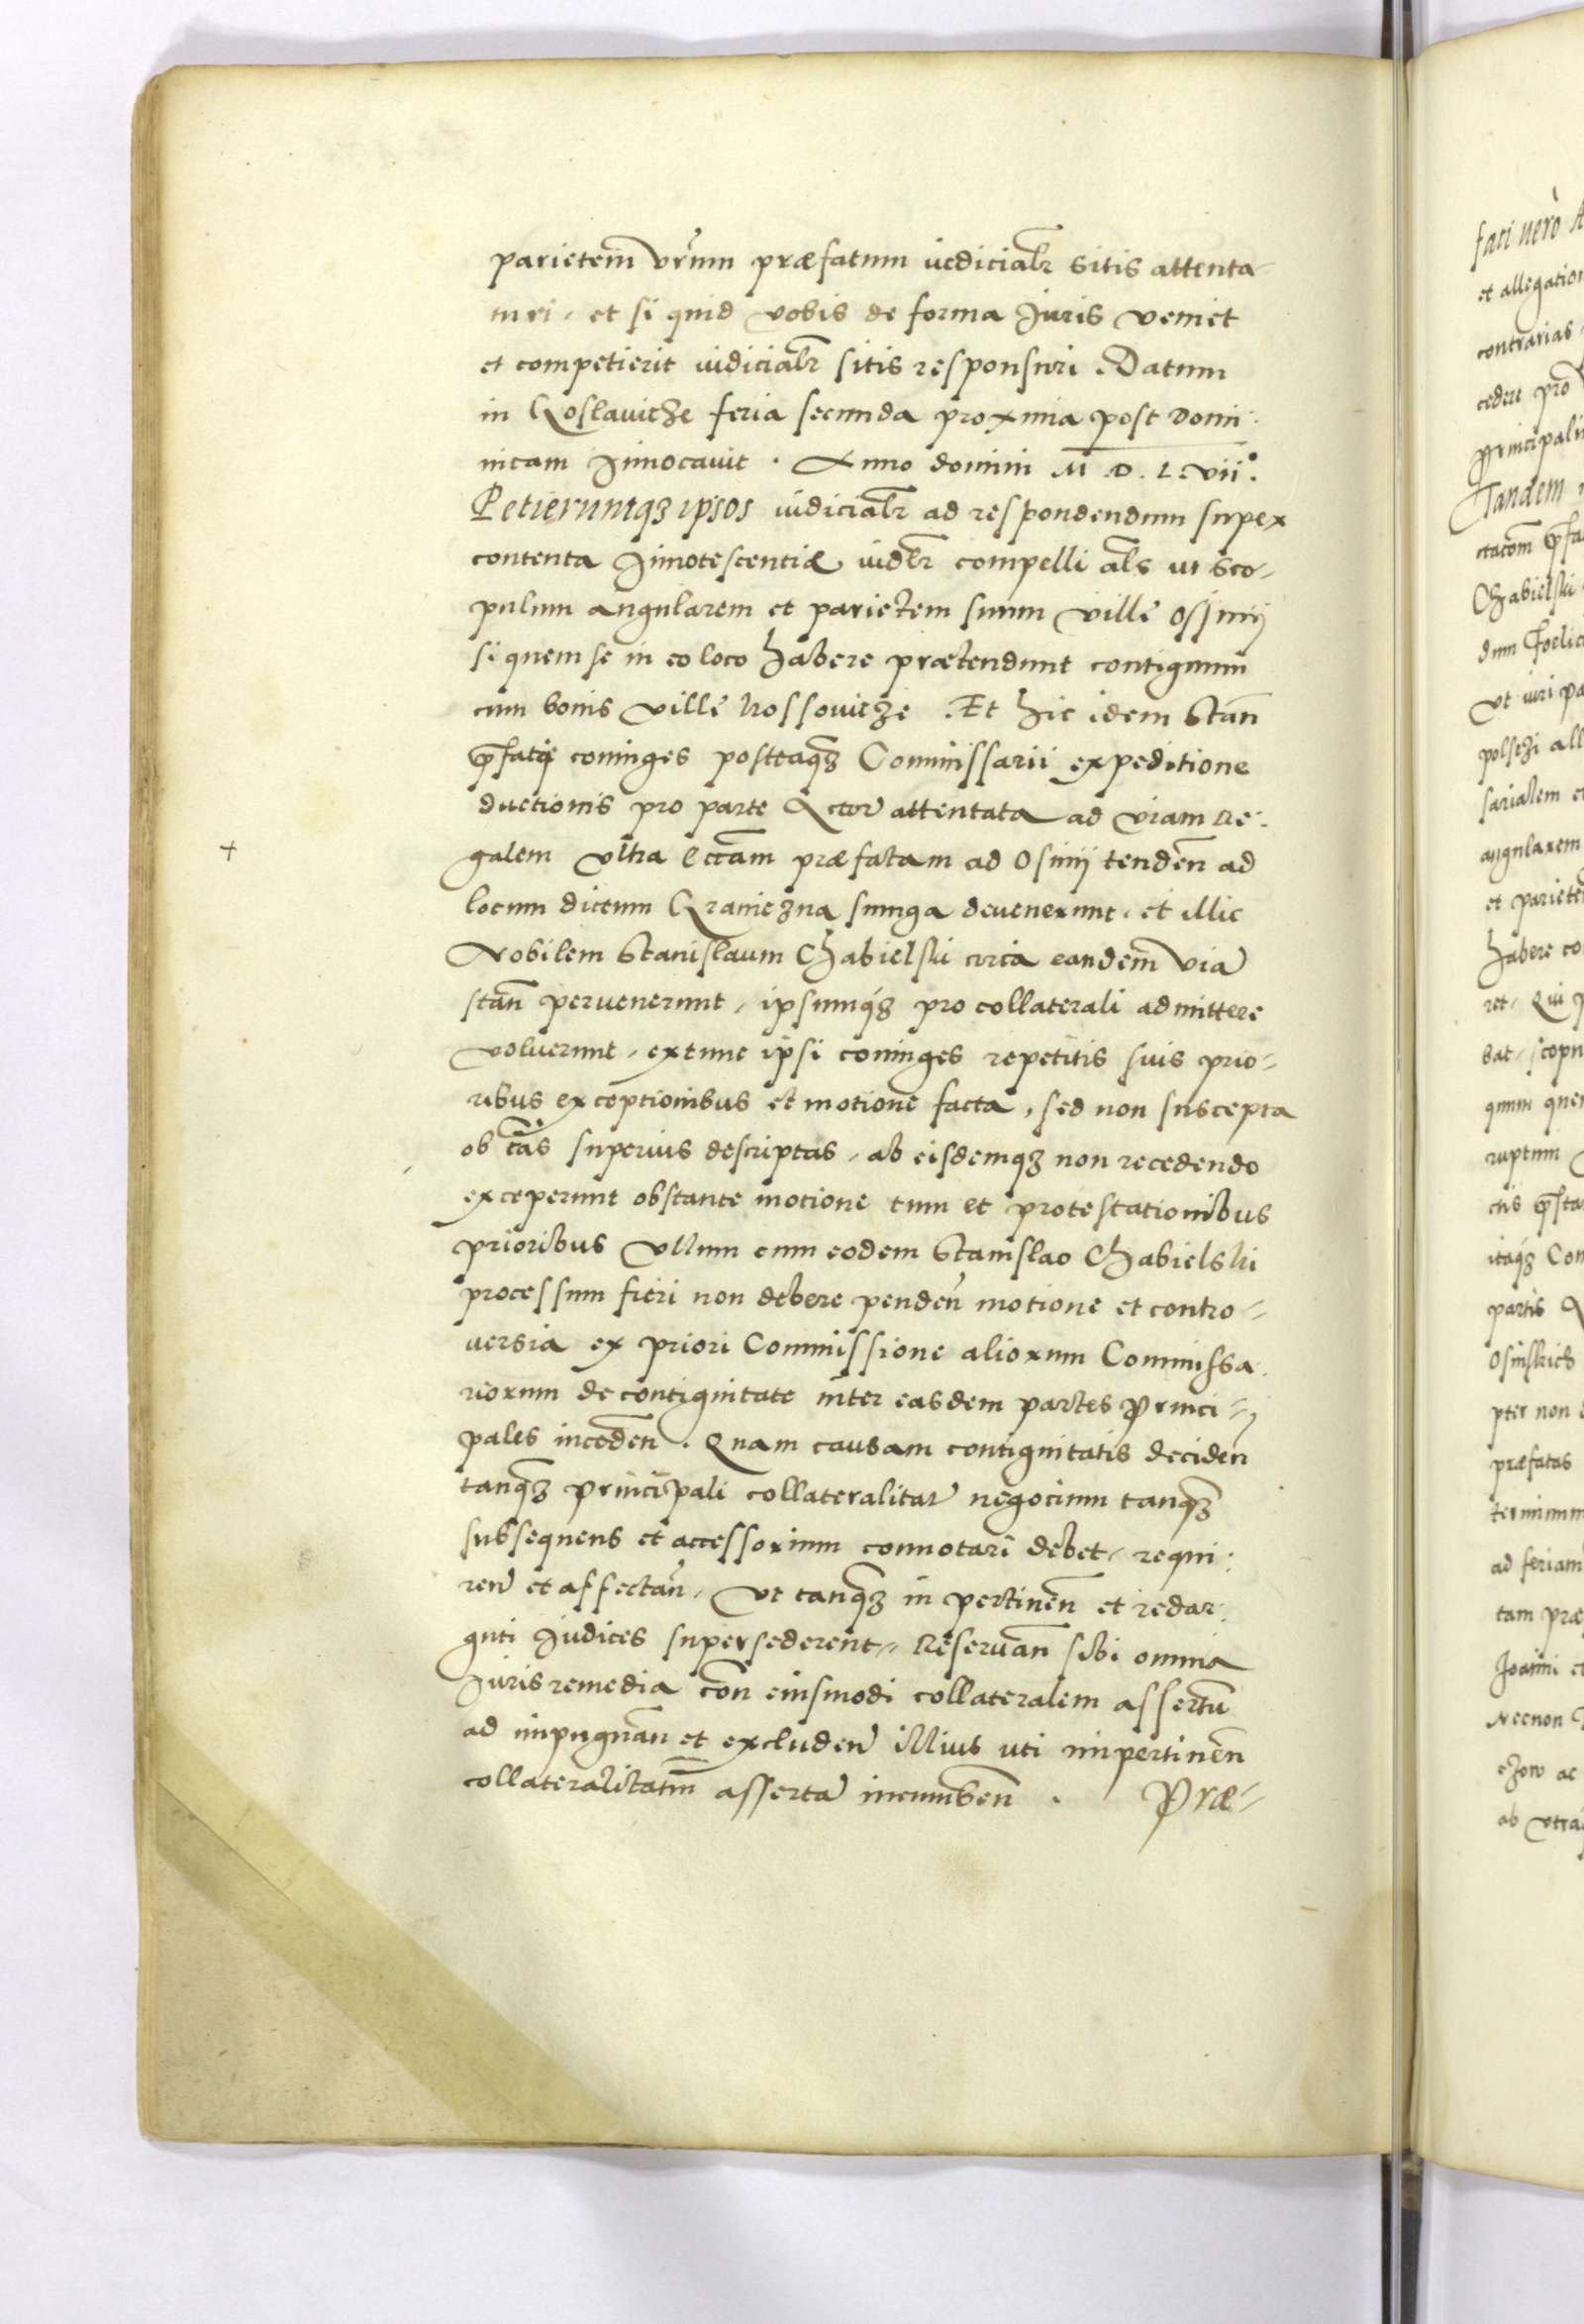 parietem vr̃um præfatum iudicialr̃ sitis attenta-
turi, et si quid vobis de forma Juris veniet
et competierit iudicialr̃ sitis responsuri. Datum
in Koslavicze feria secunda proxima post Domi:
nicam Jnuocauit. Anno domini M.D.L.vii°.
Petieruntqз ipsos iudicialr̃ ad respondendum super
contenta Jnnotescentiæ iudlr̃ compelli al̃s ut sco-
pulum angularem et parietem suum ville Ossinij
si quem se in eo loco habere prætendunt contiguum
cum bonis ville Kossowicze. Et hic idem Stan̄
p̄fatiqз coniuges posteaqз Commissarii expeditione
ductionis pro parte Actor̃ attentata ad viam Re:
galem vltra Ecclam̄ præfatam ad Osinij tenden̄ ad
locum dictum Graniczna struga devenerunt, et illic
Nobilem Stanislaum Chabielski circa eandem viā
stan̄ pervenerunt, ipsumqз pro collaterali admittere
voluerunt, extunc ipsi coniuges repetitis suis prio-
ribus exceptionibus et motione facta, sed non suscepta
ob cãs superius descriptas, ab eisdemqз non recedendo
exceperunt obstante motione tum et protestationibus
prioribus vllum cum eodem Stanislao Chabielski
processum fieri non debere penden̄ motione et contro-
versia ex priori Commissione aliorum Commissa:
riorum de contiguitate inter easdem partes Princi-
pales inceden̄. Quam causam contiguitatis deciden̄
tanqз principali collateralitat̃ negocium tanqз
subsequens et accessorium connotari debet, requi:
ren̄ et affectan̄, Vt tanqз in pertinen̄ et redar:
guti Judices supersederent, Reservan̄ sibi omnia
Juris remedia con̄ eiusmodi collateralem assertū
ad impugnan̄ et excluden̄ illius uti impertinen̄
collateralitatem̄ assertā incumben̄. Præ-
+
fati uero A
et allegation
contrarias
cedere pro
principali
Tandem
Chabielski
dum Foelic
vt iuri pa
polsczi all
sarialem et
angularem
et parietem
habere co
ret, Qui p
bat, scopu
quum quem
ruptum
ctis p̄sta
itaqз Com
partis A
Osinskich
pter non
præfatas
terminum
ad feriam
tam præ
Joanni et
Necnon
ab vtra